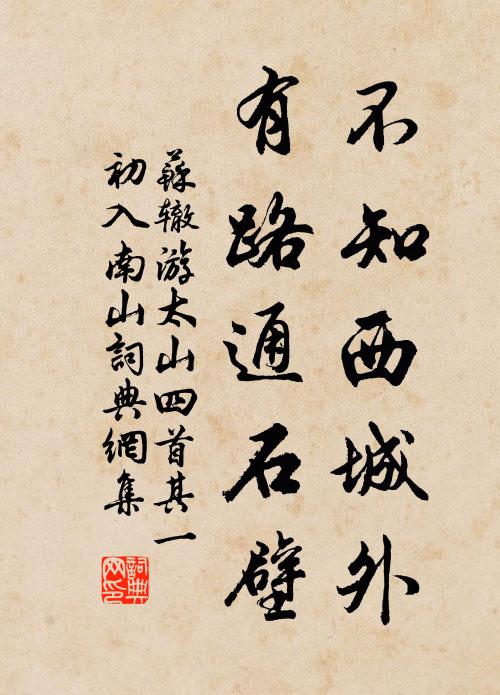 不知西城外
有路通石壁
蘇辙游太山四首其一
初入南山詞典網集
詞典
网印